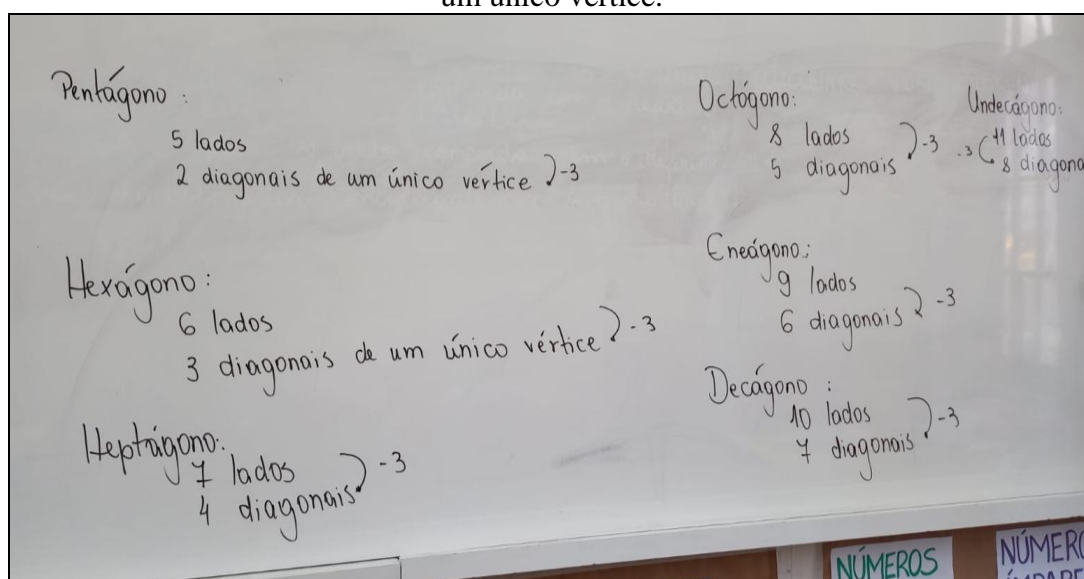 um único vértice.
Pentágono:
5 lados
2 diagonais de um único vértice -3
Hexágono:
6 lados
3 diagonais de um único vértice -3
Heptágono:
7 lados
4 diagonais -3
Octógono:
8 lados
5 diagonais -3
Undecágono:
-3 11 lados
8 diagona
Eneágono:
9 lados
6 diagonais -3
Decágono:
10 lados
7 diagonais -3
NÚMEROS
NÚMERO